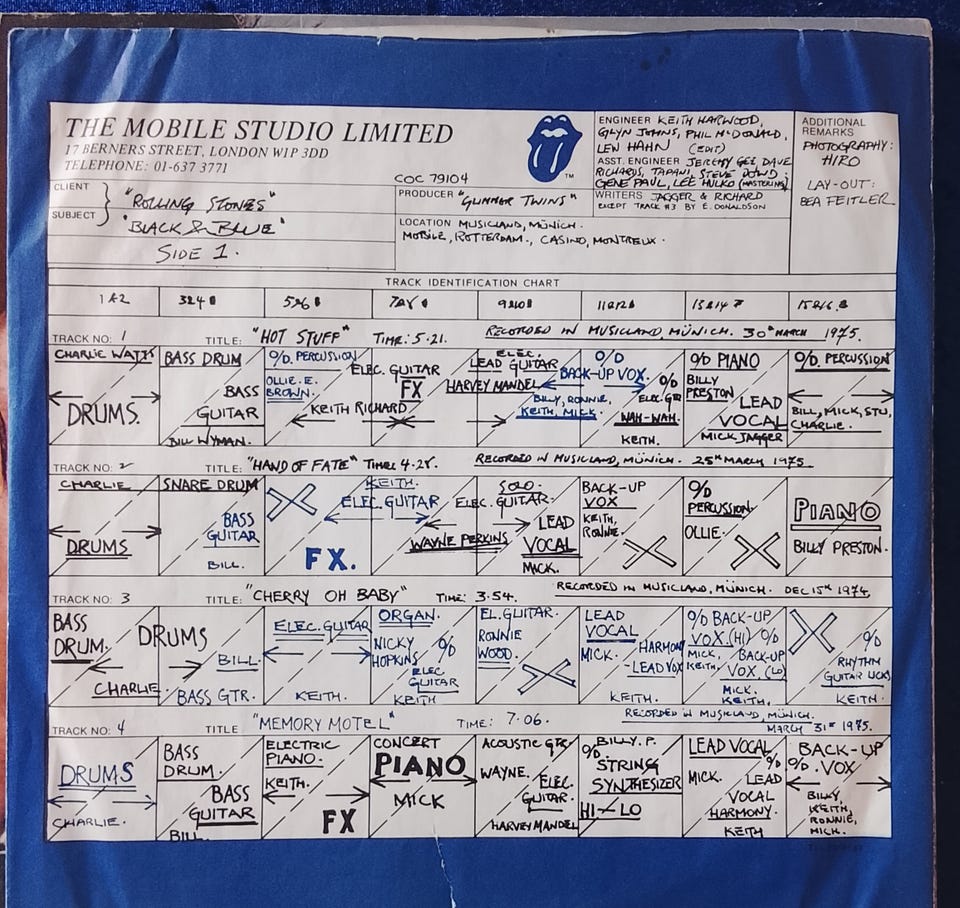 THE MOBILE STUDIO LIMITED
17 BERNERS STREET, LONDON W1P 3DD
TELEPHONE: 01-637 3771
COC 79104
CLIENT
SUBJECT
"ROLLING STONES"
"BLACK & BLUE"
SIDE 1.
PRODUCER "GLIMMER TWINS"
LOCATION MUSICLAND, MÜNICH.
MOBILE, ROTTERDAM., CASINO, MONTREUX.
TM
ENGINEER KEITH HARWOOD,
GLYN JOHNS, PHIL McDONALD,
LEW HAHN (EDIT)
ASST. ENGINEER JEREMY GEE, DAVE
RICHARDS, TAPANI, STEVE DOWD;
GENE PAUL, LEE HULKO (MASTERING)
WRITERS JAGGER & RICHARD
EXCEPT TRACK #3 BY E. DONALDSON
ADDITIONAL
REMARKS
PHOTOGRAPHY:
HIRO
LAY-OUT:
BEA FEITLER
TRACK IDENTIFICATION CHART
1 & 2
3 & 4
5 & 6
7 & 8
9 & 10
11 & 12
13 & 14
15 & 16
TRACK NO: 1 TITLE: "HOT STUFF" TIME: 5·21. RECORDED IN MUSICLAND, MÜNICH. 30TH MARCH 1975.
CHARLIE WATTS
DRUMS.
BASS DRUM
BASS
GUITAR
BILL WYMAN.
O/D. PERCUSSION
OLLIE. E.
BROWN.
KEITH RICHARD
ELEC. GUITAR
FX
ELEC.
LEAD GUITAR
HARVEY MANDEL
O/D
BACK-UP VOX.
BILLY, RONNIE,
KEITH, MICK.
O/D
ELEC. GTR
WAH-WAH.
KEITH.
O/D PIANO
BILLY
PRESTON
LEAD
VOCAL
MICK JAGGER
O/D. PERCUSSION
BILL, MICK, STU,
CHARLIE.
TRACK NO: 2 TITLE: "HAND OF FATE" TIME: 4·28. RECORDED IN MUSICLAND, MÜNICH. 25TH MARCH 1975.
CHARLIE
DRUMS
SNARE DRUM
BASS
GUITAR
BILL.
FX.
KEITH.
ELEC GUITAR
WAYNE PERKINS
SOLO.
ELEC. GUITAR.
LEAD
VOCAL
MICK.
BACK-UP
VOX
KEITH,
RONNIE.
O/D
PERCUSSION.
OLLIE.
PIANO
BILLY PRESTON.
TRACK NO: 3 TITLE: "CHERRY OH BABY" TIME: 3·54. RECORDED IN MUSICLAND, MÜNICH. DEC 15TH 1974
BASS
DRUM.
CHARLIE
DRUMS
BILL.
BASS GTR.
ELEC. GUITAR
KEITH.
ORGAN.
NICKY
HOPKINS
O/D
ELEC
GUITAR
KEITH
EL. GUITAR.
RONNIE
WOOD.
LEAD
VOCAL
MICK.
HARMONY
-LEAD VOX
KEITH.
O/D BACK-UP
VOX. (HI)
MICK,
KEITH.
O/D
BACK-UP
VOX. (LO)
MICK.
KEITH.
O/D
RHYTHM
GUITAR LICKS
KEITH.
TRACK NO: 4 TITLE "MEMORY MOTEL" TIME: 7·06. RECORDED IN MUSICLAND, MÜNICH.
MARCH 31ST 1975.
DRUMS
CHARLIE.
BASS
DRUM.
BASS
GUITAR
BILL
ELECTRIC
PIANO.
KEITH.
FX
CONCERT
PIANO
MICK
ACOUSTIC GTR.
WAYNE.
ELEC.
GUITAR.
HARVEY MANDEL
O/D BILLY. P.
STRING
SYNTHESIZER
HI - LO
LEAD VOCAL
MICK.
O/D
LEAD
VOCAL
HARMONY.
KEITH
BACK-UP
O/D. VOX
BILLY,
KEITH,
RONNIE,
MICK.